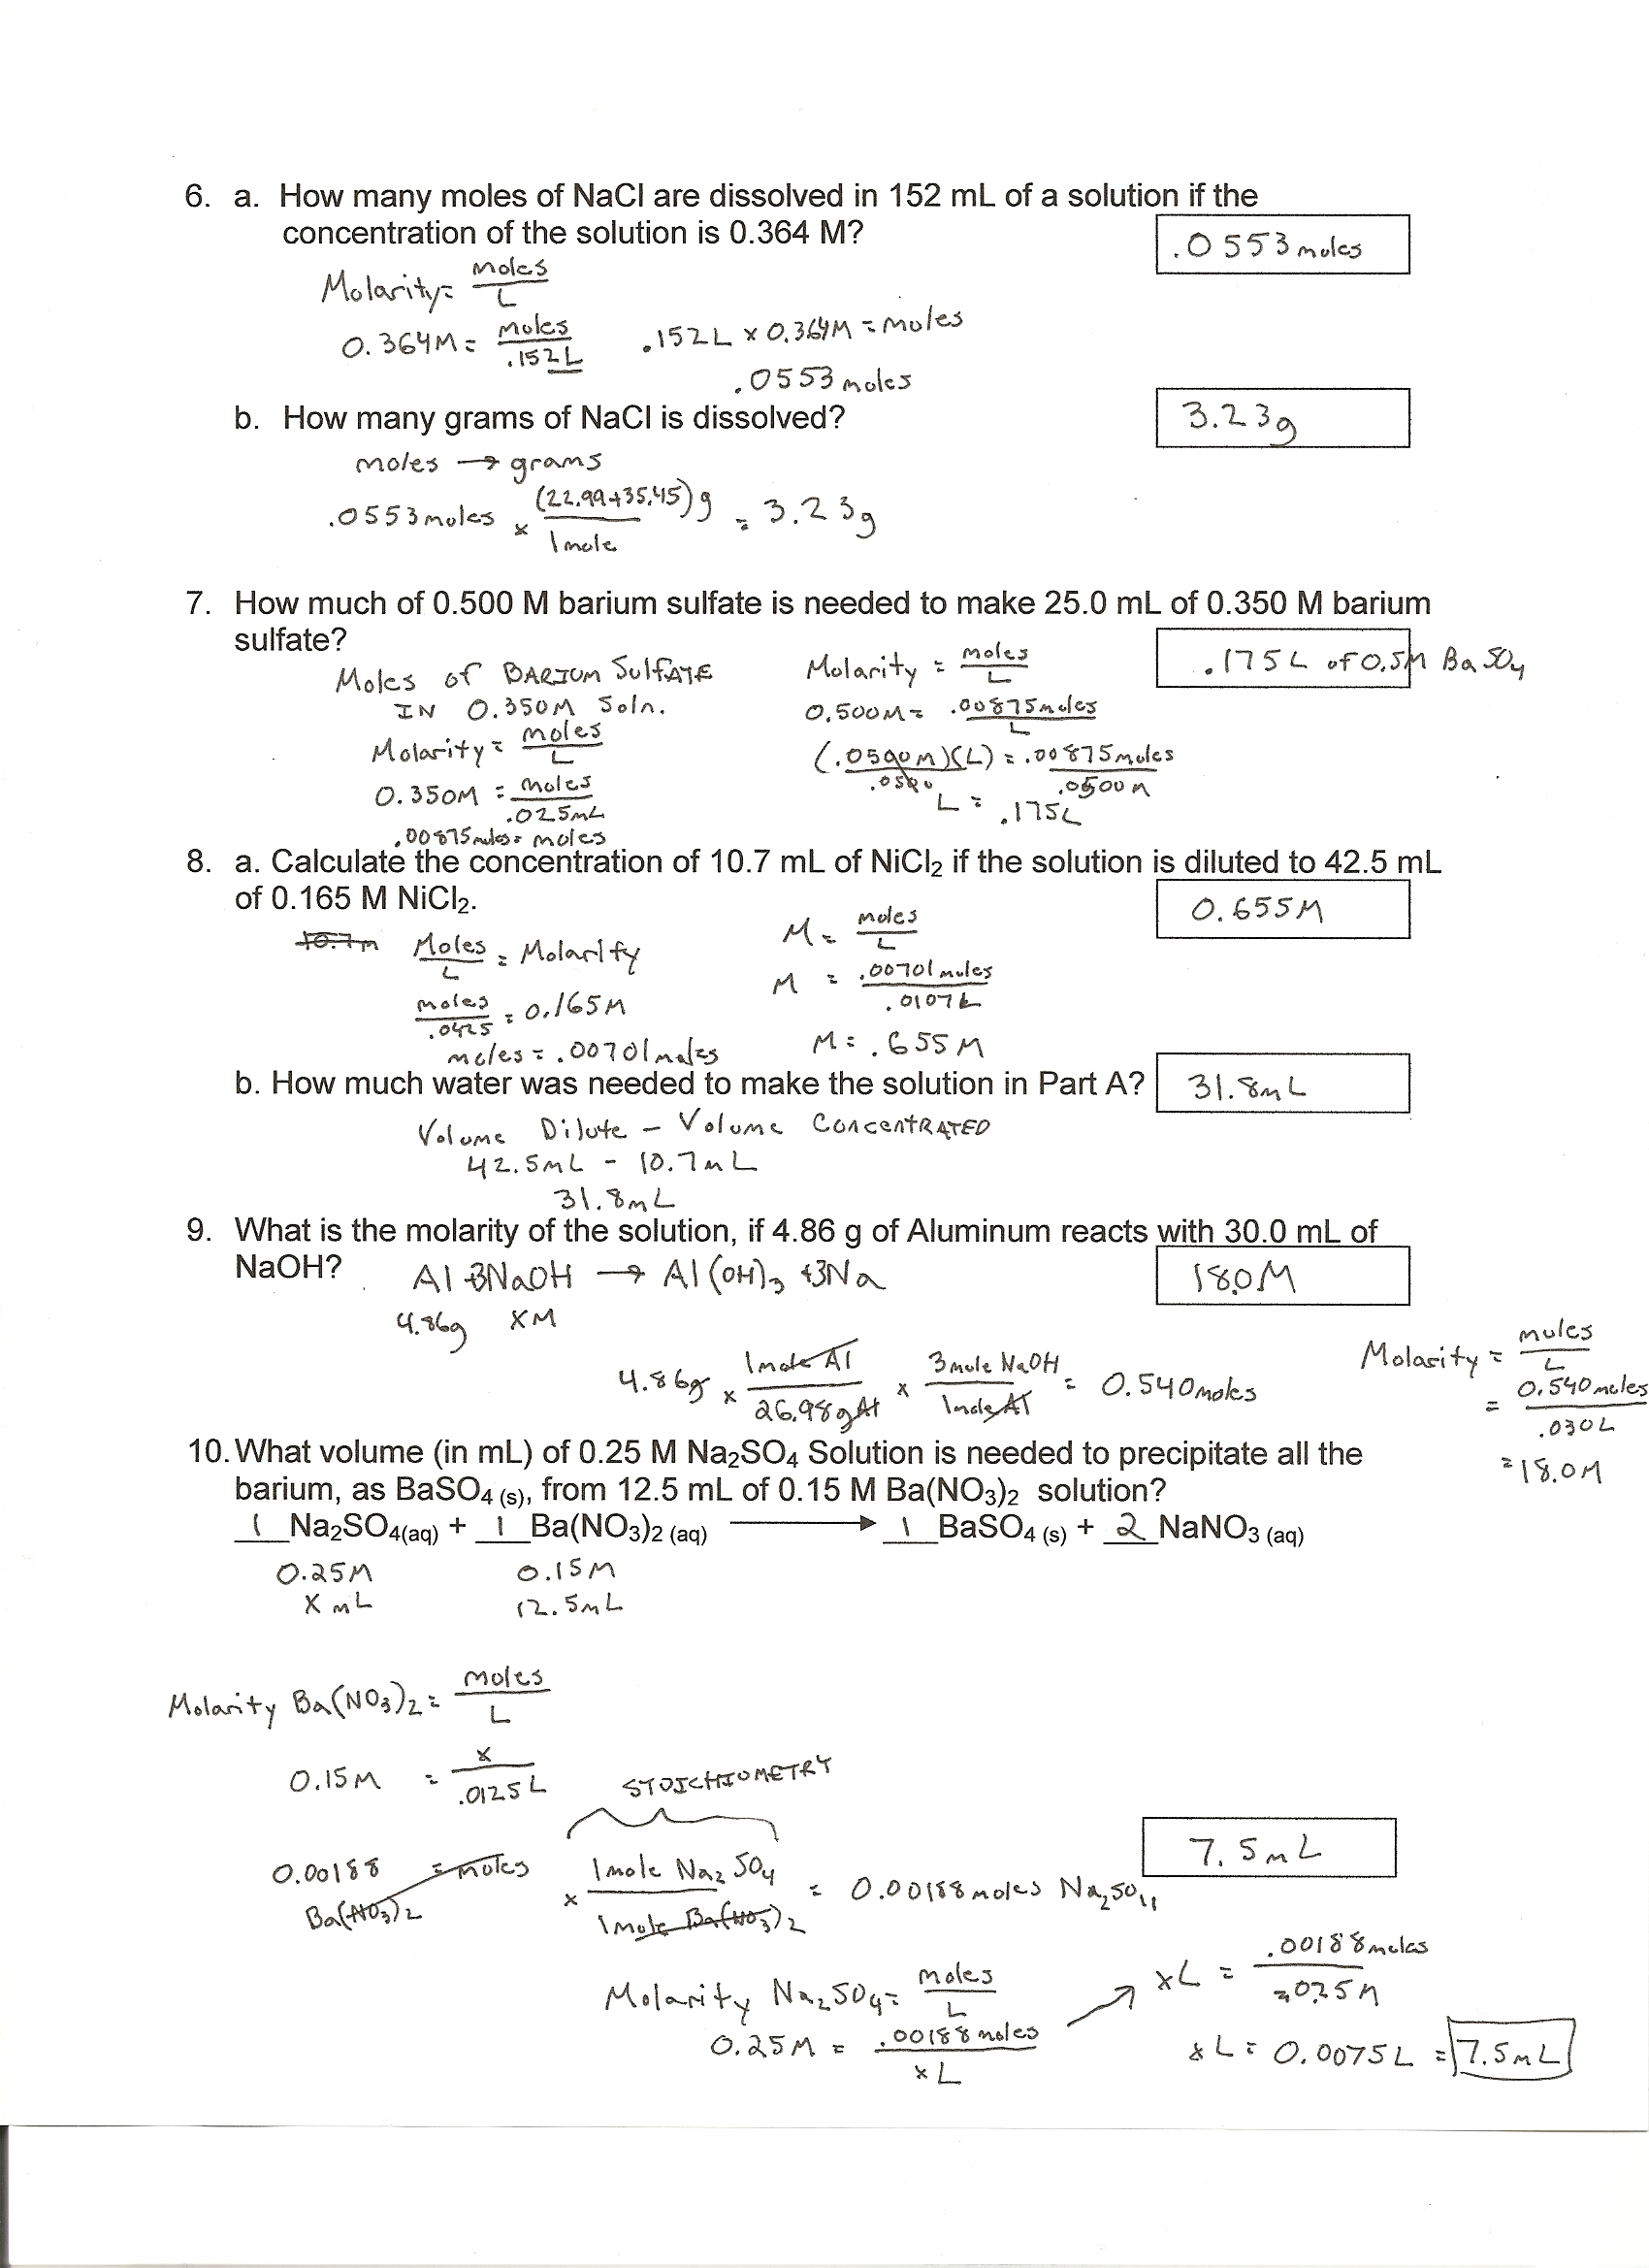 6. a. How many moles of NaCl are dissolved in 152 mL of a solution if the
concentration of the solution is 0.364 M?
.0553 moles
Molarity = moles / L
0.364M = moles / .152L
.152L x 0.364M = moles
.0553 moles
b. How many grams of NaCl is dissolved?
3.23g
moles → grams
.0553 moles x (22.99+35.45)g / 1 mole = 3.23g
7. How much of 0.500 M barium sulfate is needed to make 25.0 mL of 0.350 M barium
sulfate?
.175L of 0.5M BaSO4
Moles of BARIUM SulfATE
IN 0.350M Soln.
Molarity = moles / L
0.350M = moles / .025mL
.00875 moles = moles
Molarity = moles / L
0.500M = .00875 moles / L
(.0500M)(L) = .00875 moles
.0500 .0500M
L = .175L
8. a. Calculate the concentration of 10.7 mL of NiCl2 if the solution is diluted to 42.5 mL
of 0.165 M NiCl2.
0.655M
10.7m
Moles / L = Molarity
moles / .0425 = 0.165M
moles = .00701 moles
M = moles / L
M = .00701 moles / .0107L
M = .655M
b. How much water was needed to make the solution in Part A?
31.8mL
Volume Dilute - Volume ConcentRATED
42.5mL - 10.7mL
31.8mL
9. What is the molarity of the solution, if 4.86 g of Aluminum reacts with 30.0 mL of
NaOH?
18.0M
Al + 3NaOH → Al(OH)3 + 3Na
4.86g XM
4.86g x 1 mole Al / 26.98g Al x 3 mole NaOH / 1 mole Al = 0.540 moles
Molarity = moles / L
= 0.540 moles / .030L
= 18.0M
10. What volume (in mL) of 0.25 M Na2SO4 Solution is needed to precipitate all the
barium, as BaSO4 (s), from 12.5 mL of 0.15 M Ba(NO3)2 solution?
1 Na2SO4(aq) + 1 Ba(NO3)2 (aq) → 1 BaSO4 (s) + 2 NaNO3 (aq)
0.25M 0.15M
X mL 12.5mL
Molarity Ba(NO3)2 = moles / L
0.15M = x / .0125L
STOICHIOMETRY
7.5mL
0.00188 = moles Ba(NO3)2 x 1 mole Na2SO4 / 1 mole Ba(NO3)2 = 0.00188 moles Na2SO4
Molarity Na2SO4 = moles / L
0.25M = .00188 moles / xL
xL = .00188 moles / .025M
xL = 0.0075L = 7.5mL